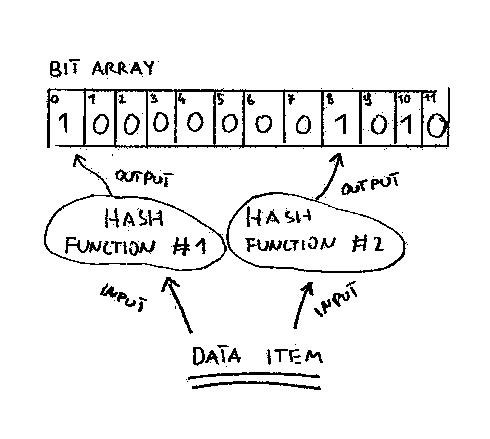 BIT ARRAY
0 1 2 3 4 5 6 7 8 9 10 11
1 0 0 0 0 0 0 0 1 0 1 0
OUTPUT OUTPUT
HASH HASH
FUNCTION #1 FUNCTION #2
INPUT INPUT
DATA ITEM